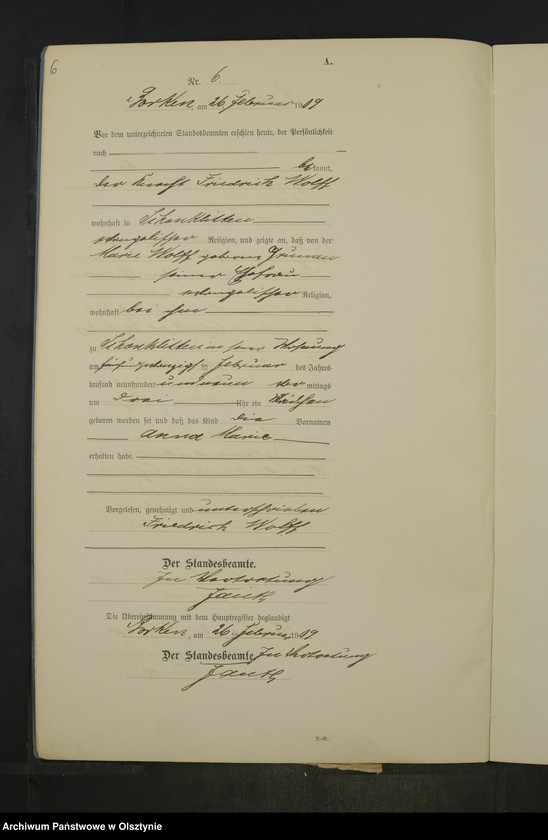 6
A.
Nr. 6.
Borken, am 26 Februar 1909
Vor dem unterzeichneten Standesbeamten erschien heute, der Persönlichkeit
nach
bekannt,
der Knecht Friedrich Wolff
wohnhaft in
evangelischer Religion, und zeigte an, daß von der
Marie Wolff geborene
seiner Ehefrau
evangelischer Religion,
wohnhaft bei ihm
zu in seiner Wohnung
am fünfundzwanzigsten Februar des Jahres
tausend neunhundert und neun mittags
um drei Uhr ein Mädchen
geboren worden sei und daß das Kind die Vornamen
Anna Marie
erhalten habe
Vorgelesen, genehmigt und unterschrieben
Friedrich Wolff
Der Standesbeamte.
In Vertretung
Die Übereinstimmung mit dem Hauptregister beglaubigt
Borken, am 26 Februar 1909
Der Standesbeamte. In Vertretung
Archiwum Państwowe w Olsztynie